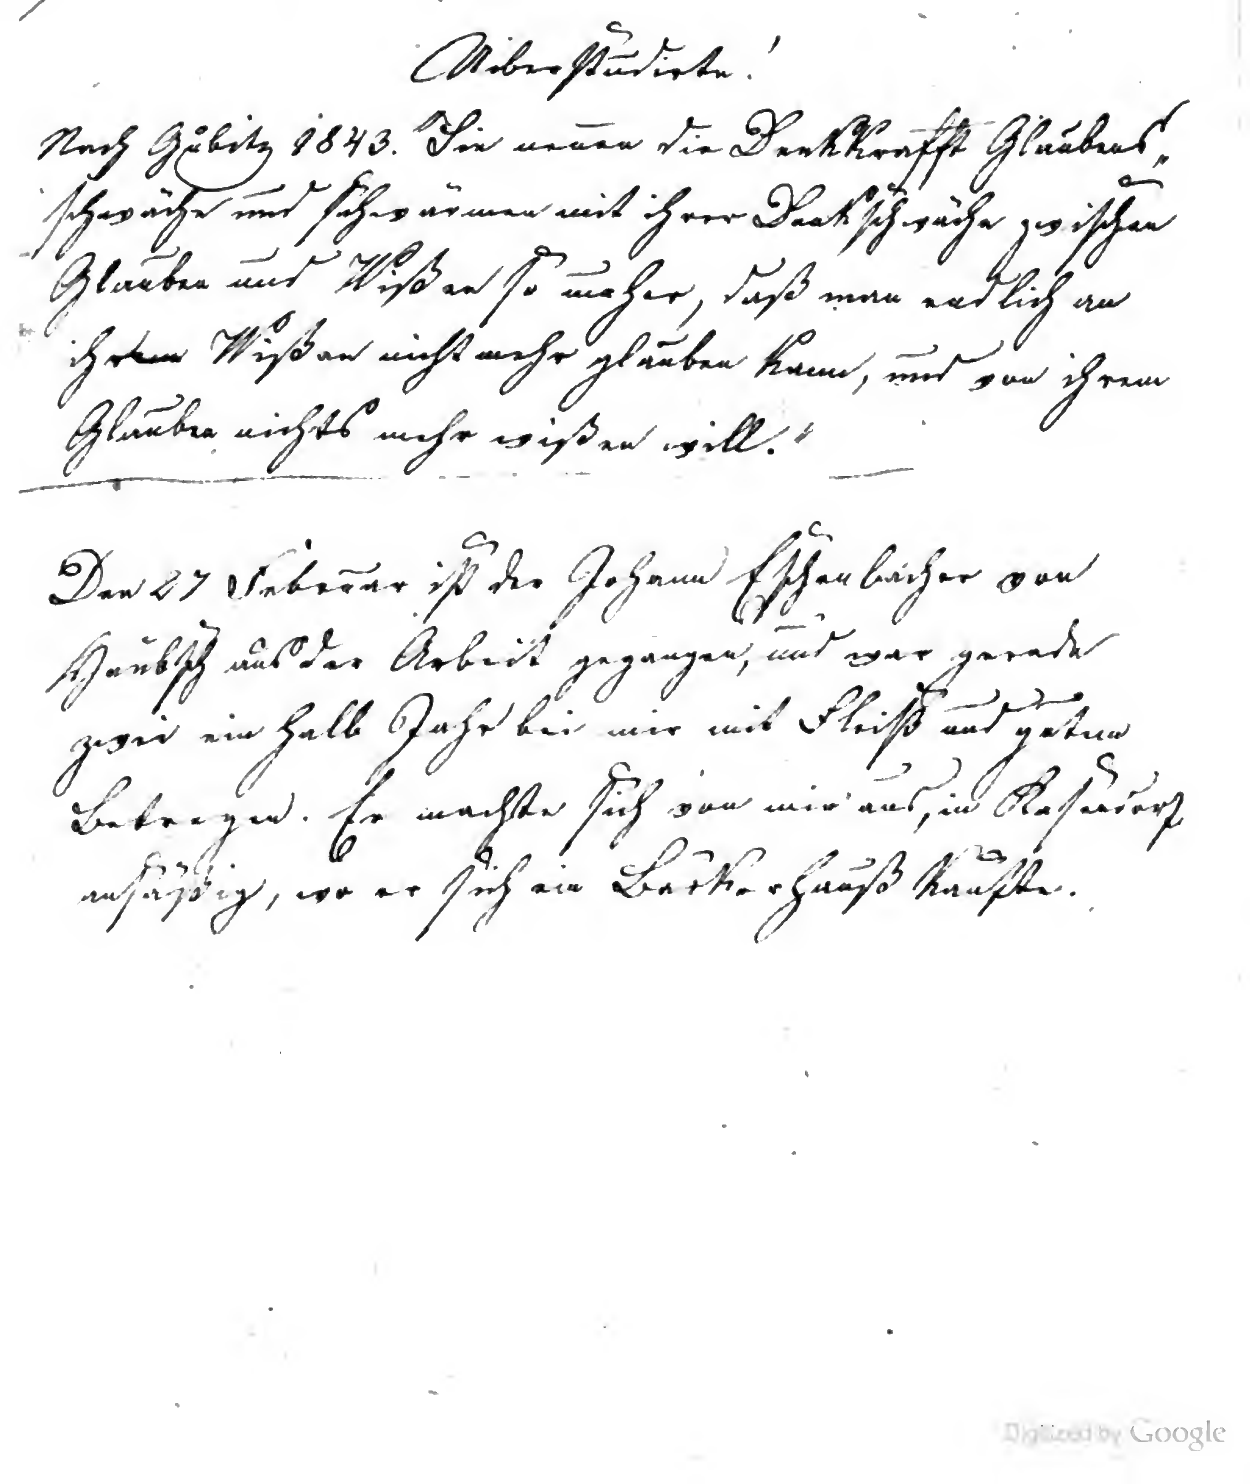 Uiberstudirte!
Nach Gubitz 1843. "Sie nennen die Denkkrafft Glaubens„
schwäche und schwärmen mit ihrer Denkschwäche zwischen
Glauben und Wißen so umher, daß man endlich an
ihrem Wißen nicht mehr glauben kann, und von ihrem
Glauben nichts mehr wißen will."
Den 27 Februar ist der Johann Eschenbacher von
aus der Arbeit gegangen, und war gerade
zwei ein halb Jahr bei mir mit Fleiß und guten
Betragen. Er machte sich von mir aus, in Kasendorf
ansäßig, wo er sich ein Bäckerhauß kaufte.
Digitized by Google